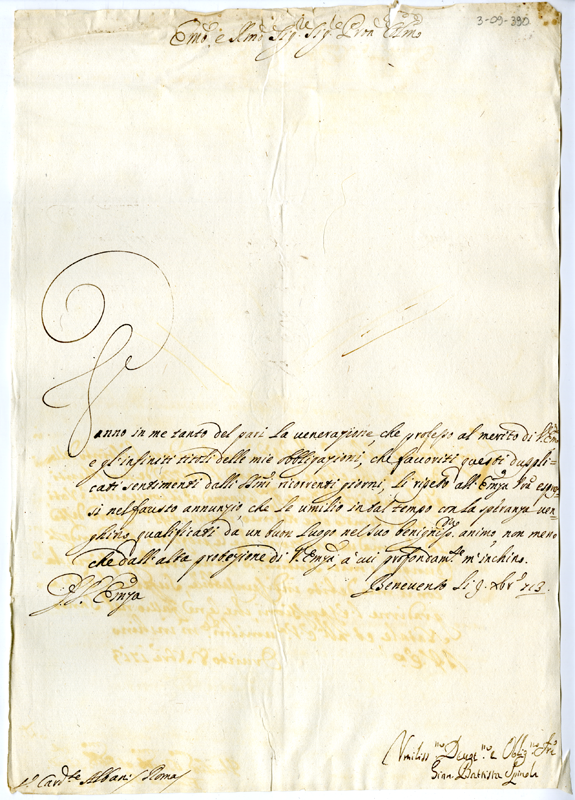 3-09-390
Em.o e R.mo Sig.re Sig.re Pron Col.mo
Fanno in me tanto del pari la venerazione, che professo al merito di V. Em.a
e gl'infiniti titoli delle mie obbligazioni, che favoriti questi duppli-
cati sentimenti dalli SS.mi ricorrenti giorni, li ripeto all'Emza Vra espres-
si nel fausto annunzio che le umilio in tal tempo con la speranza ven-
ghino qualificati da un buon luogo nel suo benigniss.o animo, non meno
che dall'alta protezione di V.a Emza, a cui profondam.te m'inchino.
Benevento li 9. Xbr 713.
Emza
Umiliss.mo Devot.mo e Obblig.mo Sre
Gian Battista Spinola
Card.le Albani Roma